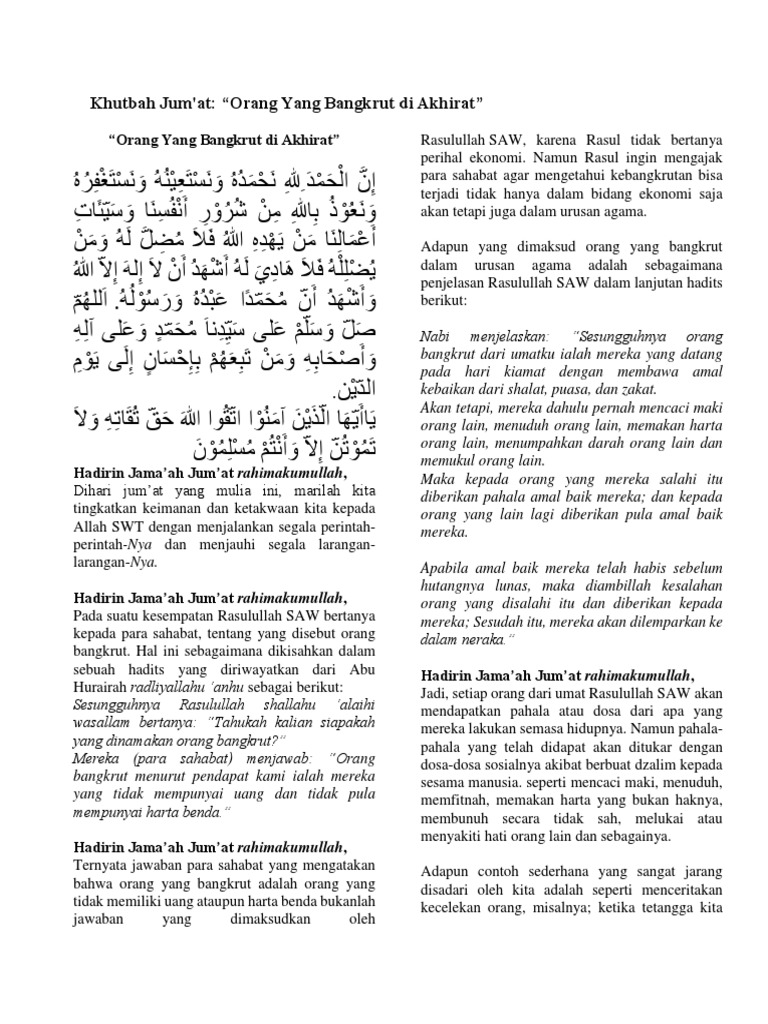 Khutbah Jum'at: “Orang Yang Bangkrut di Akhirat”
“Orang Yang Bangkrut di Akhirat”
إِنَّ الْحَمْدَ ِللهِ نَحْمَدُهُ وَنَسْتَعِيْنُهُ وَنَسْتَغْفِرُهُ
وَنَعُوْذُ بِاللهِ مِنْ شُرُوْرِ أَنْفُسِنَا وَسَيِّئَاتِ
أَعْمَالِنَا مَنْ يَهْدِهِ اللهُ فَلاَ مُضِلَّ لَهُ وَمَنْ
يُضْلِلْهُ فَلاَ هَادِيَ لَهُ أَشْهَدُ أَنْ لاَ إِلهَ إِلاَّ اللهُ
وَأَشْهَدُ أَنَّ مُحَمَّدًا عَبْدُهُ وَرَسُوْلُهُ. اَللهُمَّ
صَلِّ وَسَلِّمْ عَلى سَيِّدِناَ مُحَمَّدٍ وَعَلى آلِهِ
وَأَصْحَابِهِ وَمَنْ تَبِعَهُمْ بِإِحْسَانٍ إِلَى يَوْمِ
الدِّيْنِ.
يَاأَيّهَا الّذَيْنَ آمَنُوْا اتّقُوا اللهَ حَقّ تُقَاتِهِ وَلاَ
تَمُوْتُنّ إِلاّ وَأَنْتُمْ مُسْلِمُوْنَ
Hadirin Jama’ah Jum’at rahimakumullah,
Dihari jum’at yang mulia ini, marilah kita
tingkatkan keimanan dan ketakwaan kita kepada
Allah SWT dengan menjalankan segala perintah-
perintah-Nya dan menjauhi segala larangan-
larangan-Nya.
Hadirin Jama’ah Jum’at rahimakumullah,
Pada suatu kesempatan Rasulullah SAW bertanya
kepada para sahabat, tentang yang disebut orang
bangkrut. Hal ini sebagaimana dikisahkan dalam
sebuah hadits yang diriwayatkan dari Abu
Hurairah radliyallahu ‘anhu sebagai berikut:
Sesungguhnya Rasulullah shallahu ‘alaihi
wasallam bertanya: “Tahukah kalian siapakah
yang dinamakan orang bangkrut?“
Mereka (para sahabat) menjawab: “Orang
bangkrut menurut pendapat kami ialah mereka
yang tidak mempunyai uang dan tidak pula
mempunyai harta benda.“
Hadirin Jama’ah Jum’at rahimakumullah,
Ternyata jawaban para sahabat yang mengatakan
bahwa orang yang bangkrut adalah orang yang
tidak memiliki uang ataupun harta benda bukanlah
jawaban yang dimaksudkan oleh
Rasulullah SAW, karena Rasul tidak bertanya
perihal ekonomi. Namun Rasul ingin mengajak
para sahabat agar mengetahui kebangkrutan bisa
terjadi tidak hanya dalam bidang ekonomi saja
akan tetapi juga dalam urusan agama.
Adapun yang dimaksud orang yang bangkrut
dalam urusan agama adalah sebagaimana
penjelasan Rasulullah SAW dalam lanjutan hadits
berikut:
Nabi menjelaskan: “Sesungguhnya orang
bangkrut dari umatku ialah mereka yang datang
pada hari kiamat dengan membawa amal
kebaikan dari shalat, puasa, dan zakat.
Akan tetapi, mereka dahulu pernah mencaci maki
orang lain, menuduh orang lain, memakan harta
orang lain, menumpahkan darah orang lain dan
memukul orang lain.
Maka kepada orang yang mereka salahi itu
diberikan pahala amal baik mereka; dan kepada
orang yang lain lagi diberikan pula amal baik
mereka.
Apabila amal baik mereka telah habis sebelum
hutangnya lunas, maka diambillah kesalahan
orang yang disalahi itu dan diberikan kepada
mereka; Sesudah itu, mereka akan dilemparkan ke
dalam neraka.“
Hadirin Jama’ah Jum’at rahimakumullah,
Jadi, setiap orang dari umat Rasulullah SAW akan
mendapatkan pahala atau dosa dari apa yang
mereka lakukan semasa hidupnya. Namun pahala-
pahala yang telah didapat akan ditukar dengan
dosa-dosa sosialnya akibat berbuat dzalim kepada
sesama manusia. seperti mencaci maki, menuduh,
memfitnah, memakan harta yang bukan haknya,
membunuh secara tidak sah, melukai atau
menyakiti hati orang lain dan sebagainya.
Adapun contoh sederhana yang sangat jarang
disadari oleh kita adalah seperti menceritakan
kecelekan orang, misalnya; ketika tetangga kita